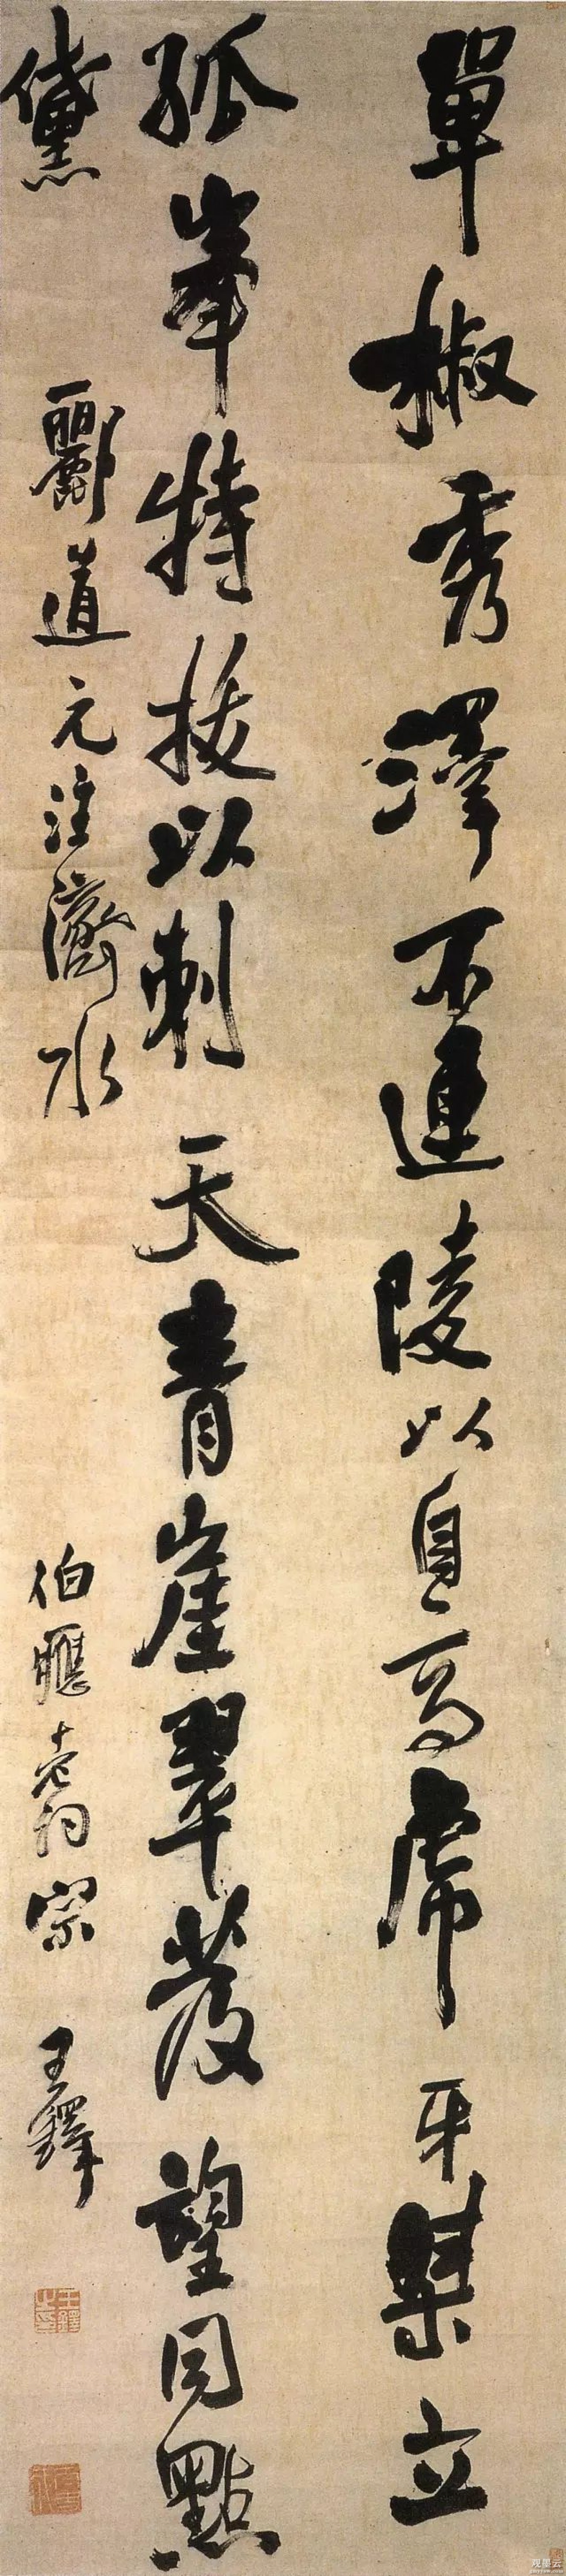 單椒秀澤不連陵以自高虎牙桀立
孤峯特拔以刺天青崖翠發望同點
黛 酈道元注濟水 伯應老詞宗 王鐸
王鐸之印
观墨云